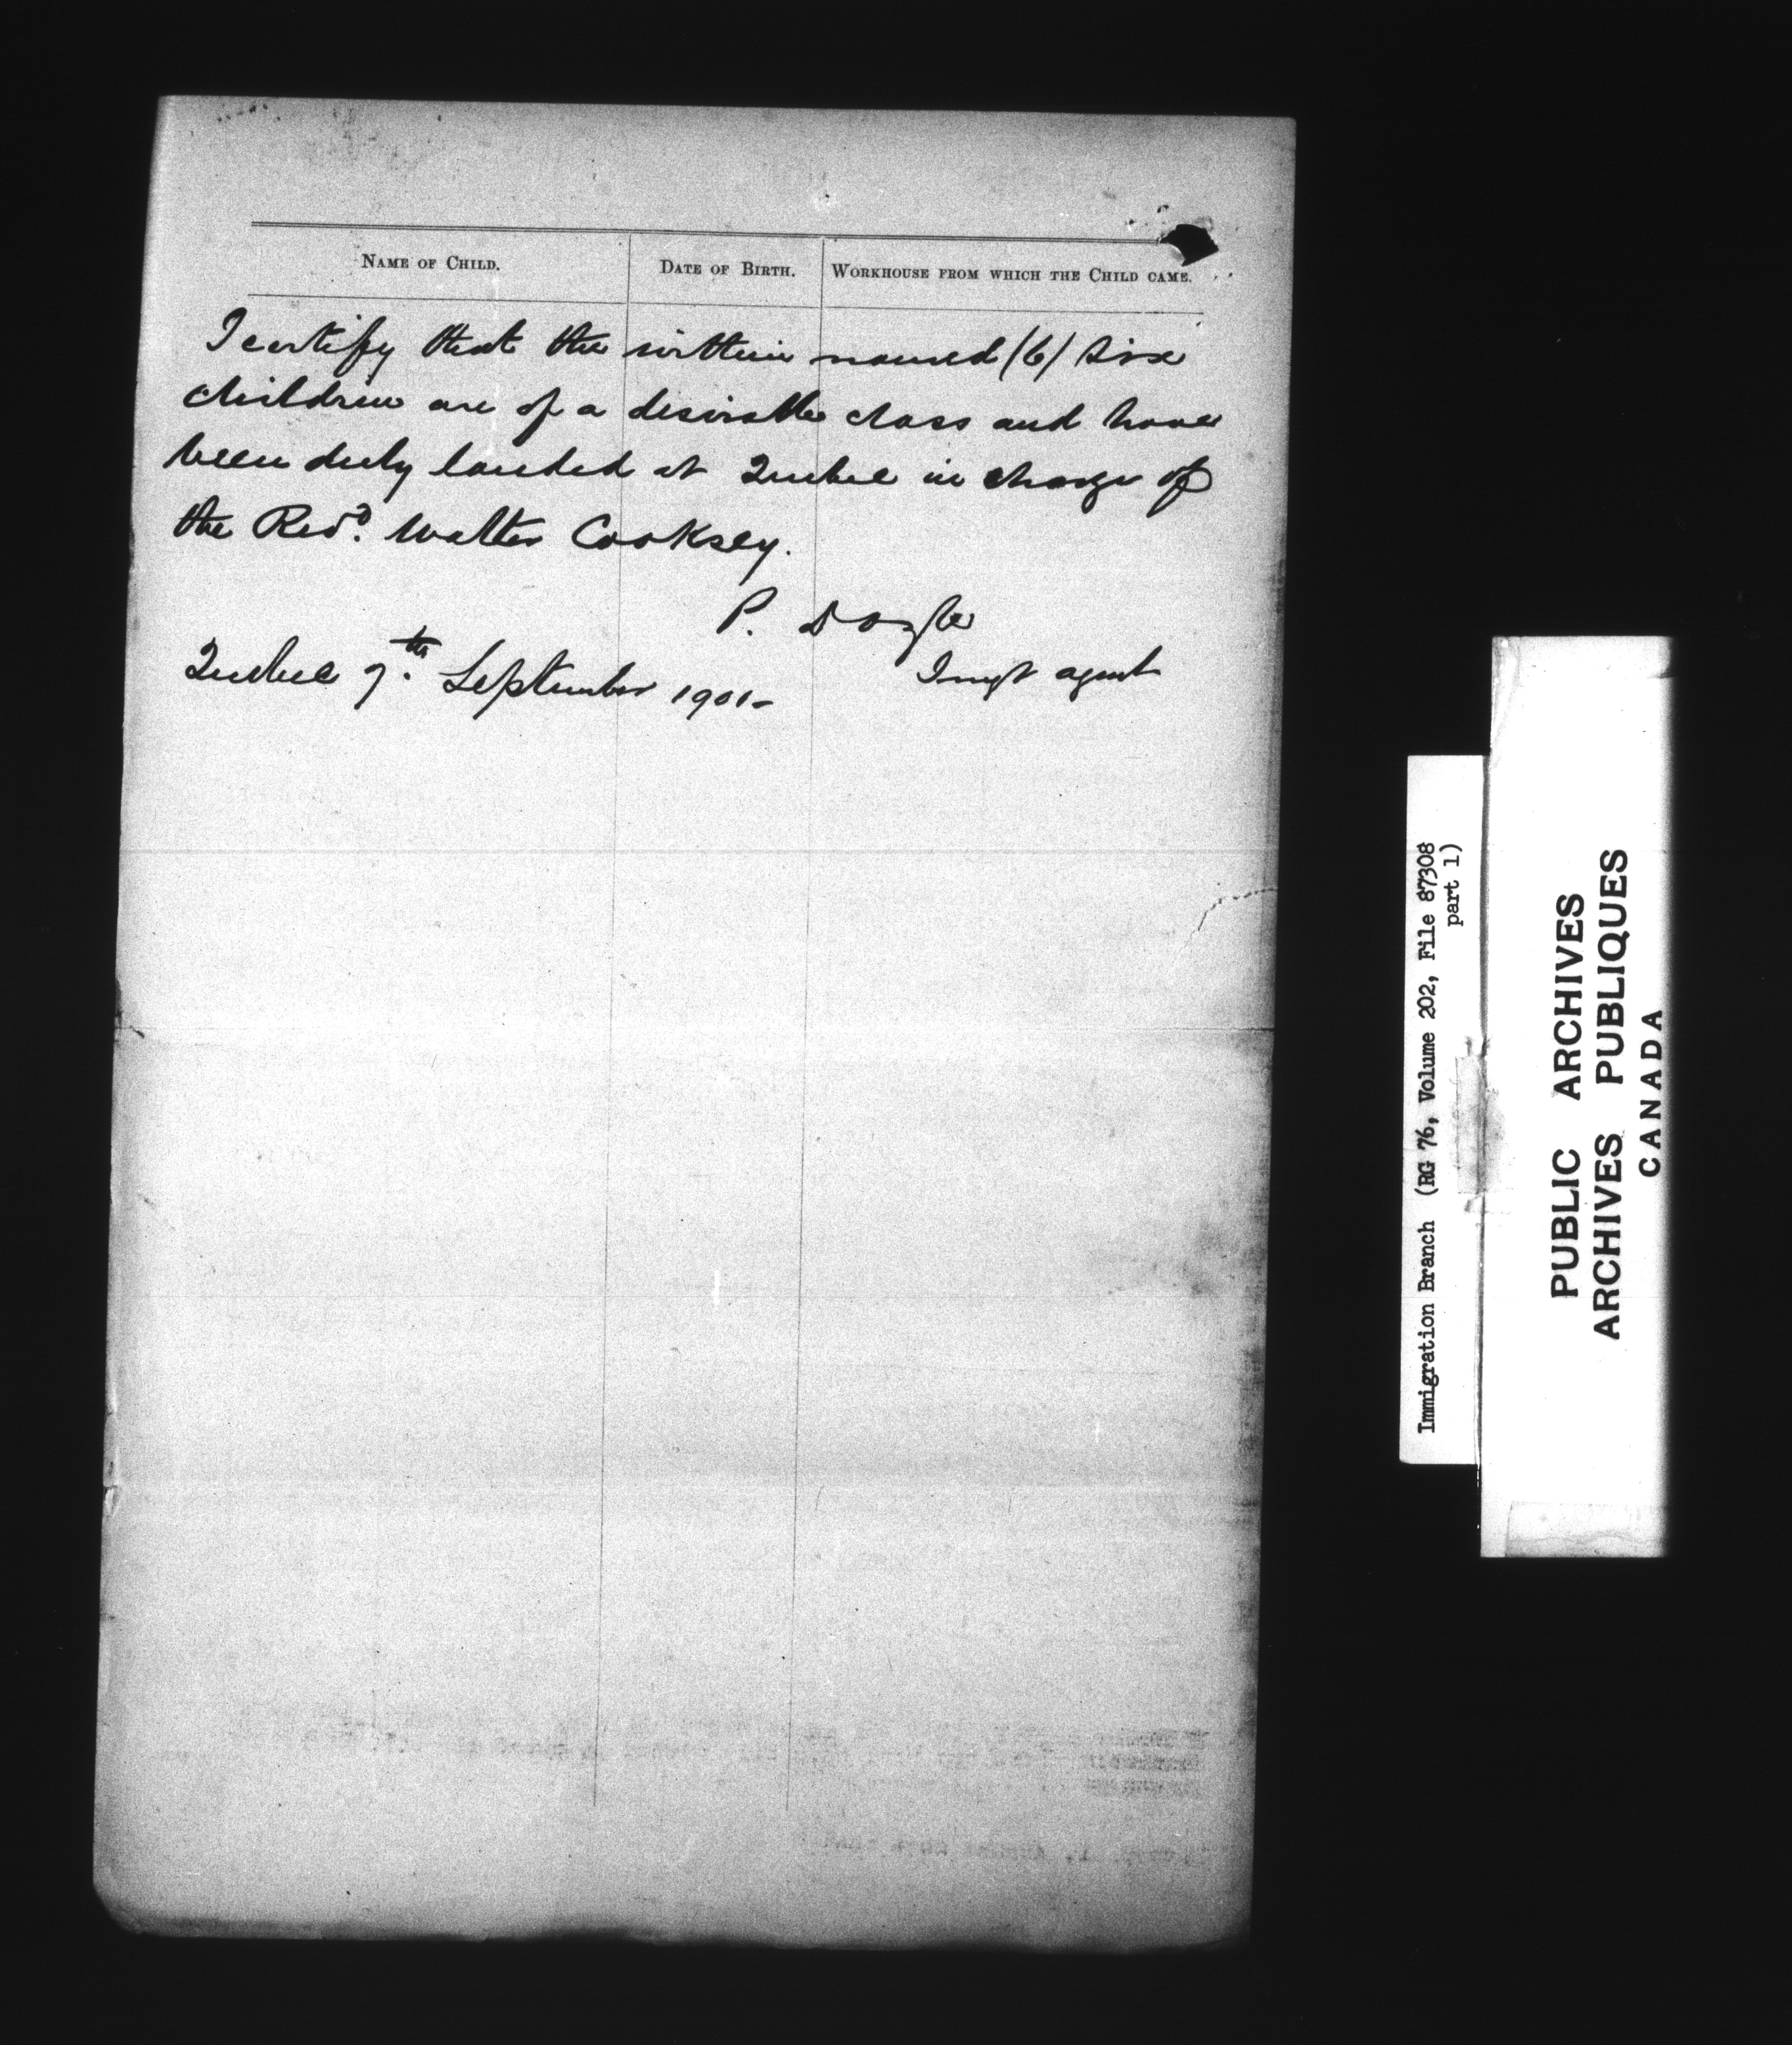 NAME OF CHILD. DATE OF BIRTH. WORKHOUSE FROM WHICH THE CHILD CAME.
I certify that the within named (6) six
children are of a desirable class and have
been duly landed at Quebec in charge of
the Revd. Walter Cooksey.
P. Doyle
Imgt agent
Quebec 7th. September 1901-
Immigration Branch (RG 76, Volume 202, File 87308
part 1)
PUBLIC ARCHIVES
ARCHIVES PUBLIQUES
CANADA